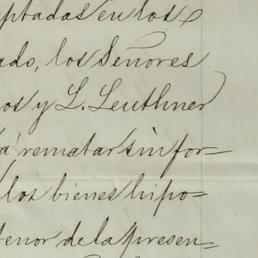 aptadas en los
ado, los Señores
os y L. Leuthner
á rematar sin for=
los bienes hipo=
tenor de la presen=